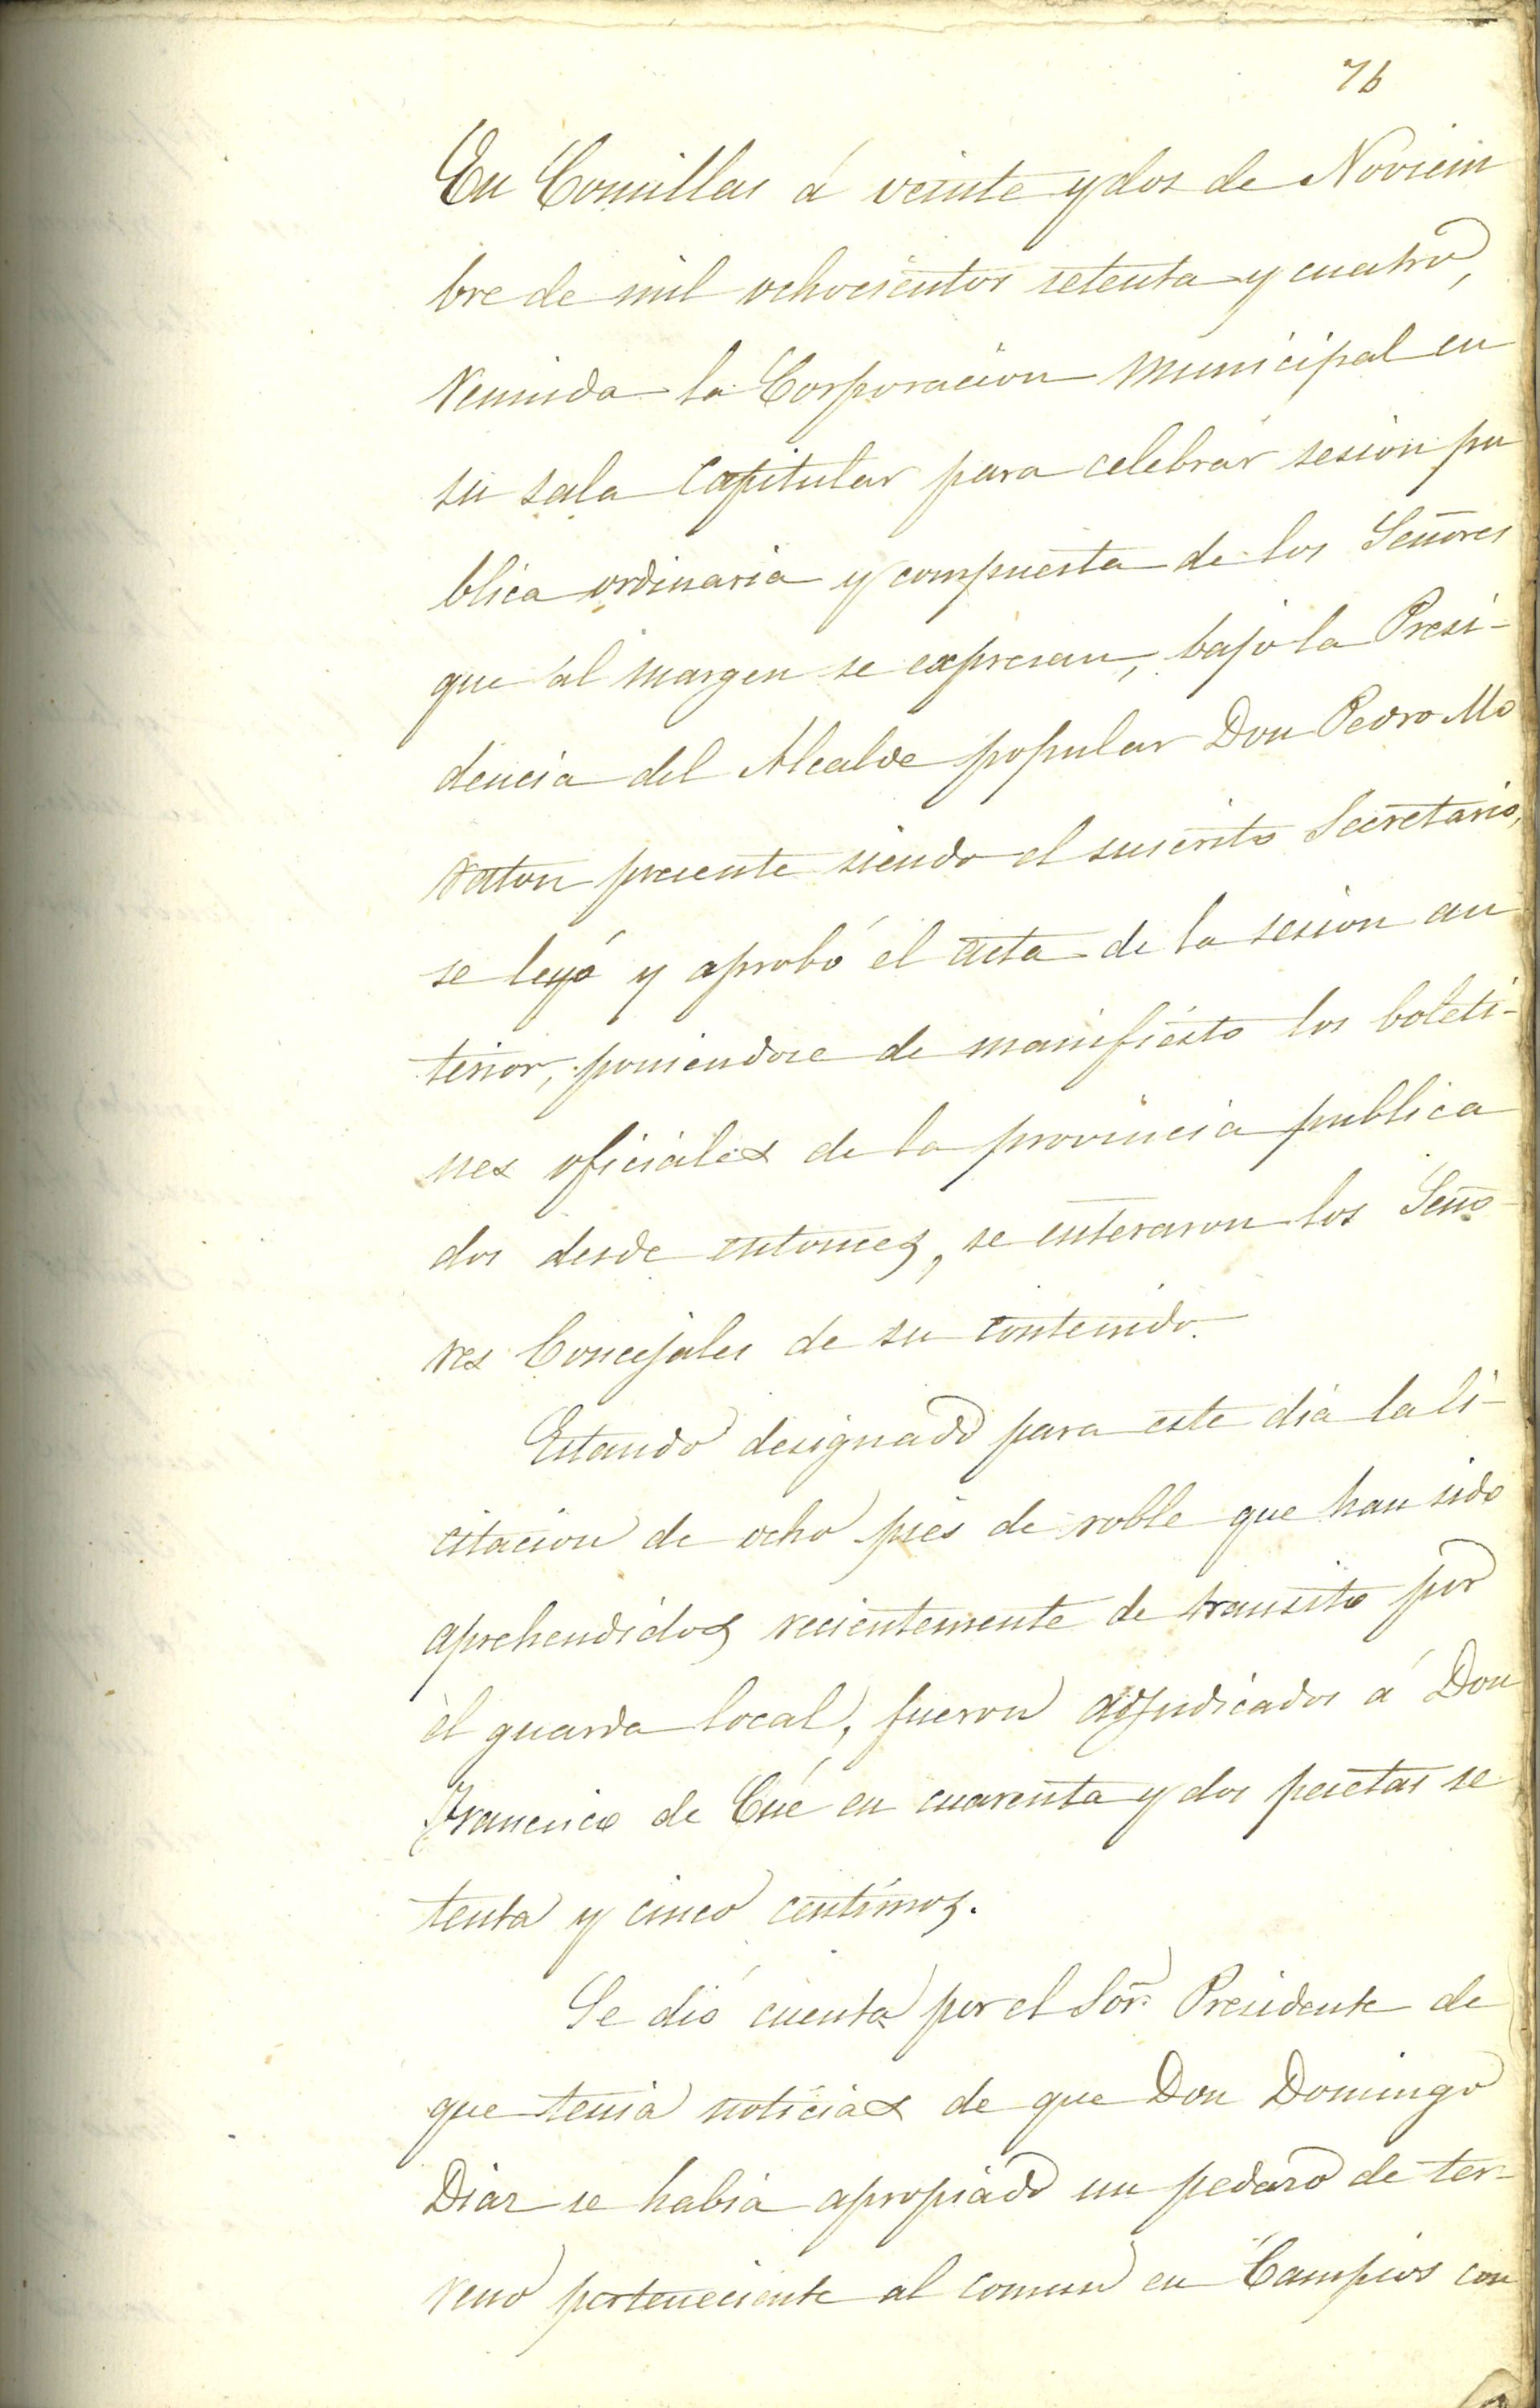 76
En Comillas á veinte y dos de Noviem
bre de mil ochocientos setenta y cuatro,
reunida la Corporacion municipal en
su sala capitular para celebrar sesion pu
blica ordinaria y compuesta de los Señores
que al margen se expresan, bajo la Presi-
dencia del Alcalde popular Don Pedro Mo
raton presente siendo el suscrito Secretario,
se leyó y aprobó el acta de la sesion an
terior, poniendose de manifiesto los boleti-
nes oficiales de la provincia publica
dos desde entonces, se enteraron los Seño
res Concejales de su contenido.
Estando designado para este dia la li-
citacion de ocho pies de roble que han sido
aprehendidos recientemente de transito por
el guarda local, fueron adjudicados á Don
Francisco de Cué en cuarenta y dos pesetas se
tenta y cinco centimos.
Se dió cuenta por el Sor. Presidente de
que tenia noticias de que Don Domingo
Diaz se habia apropiado un pedazo de ter-
reno perteneciente al comun en Campios con